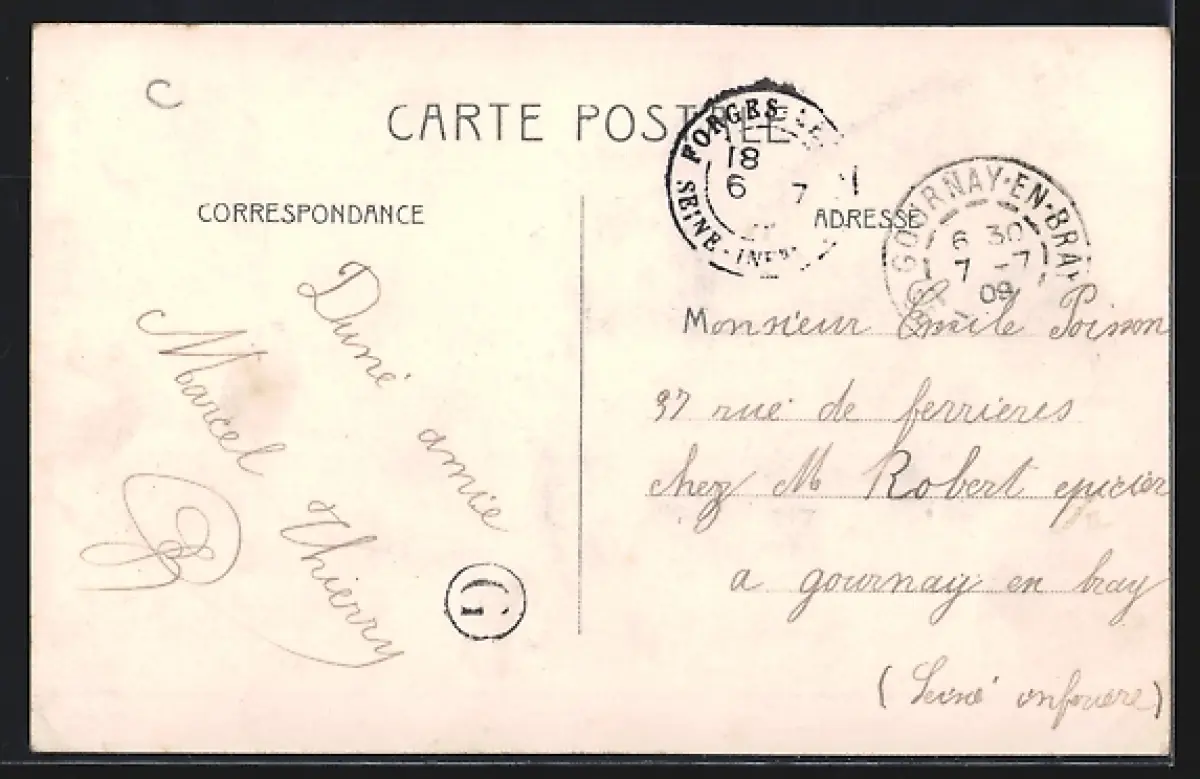 C
CARTE POSTALE
FORGES-LE
18
6 7
SEINE-INF
GOURNAY-EN-BRAY
6 30
7 -7
09
CORRESPONDANCE
ADRESSE
Duné amie
Marcel Thierry
G
Monsieur Emile Poisson
37 rué de ferrieres
chez M Robert epicier
a gournay en bray
(Seiné onfouere)